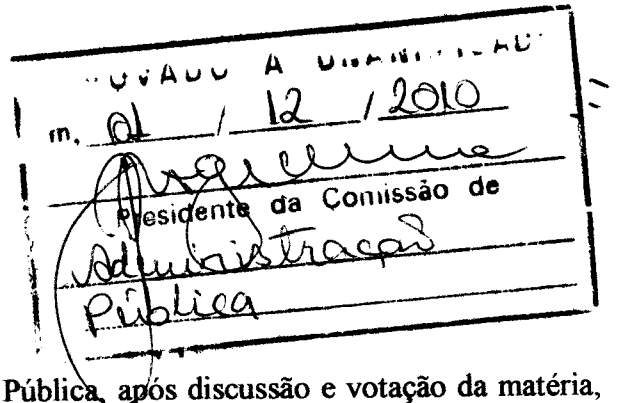 A
m, 01 / 12 / 2010
Presidente da Comissão de
Administração
Pública
Pública, após discussão e votação da matéria,